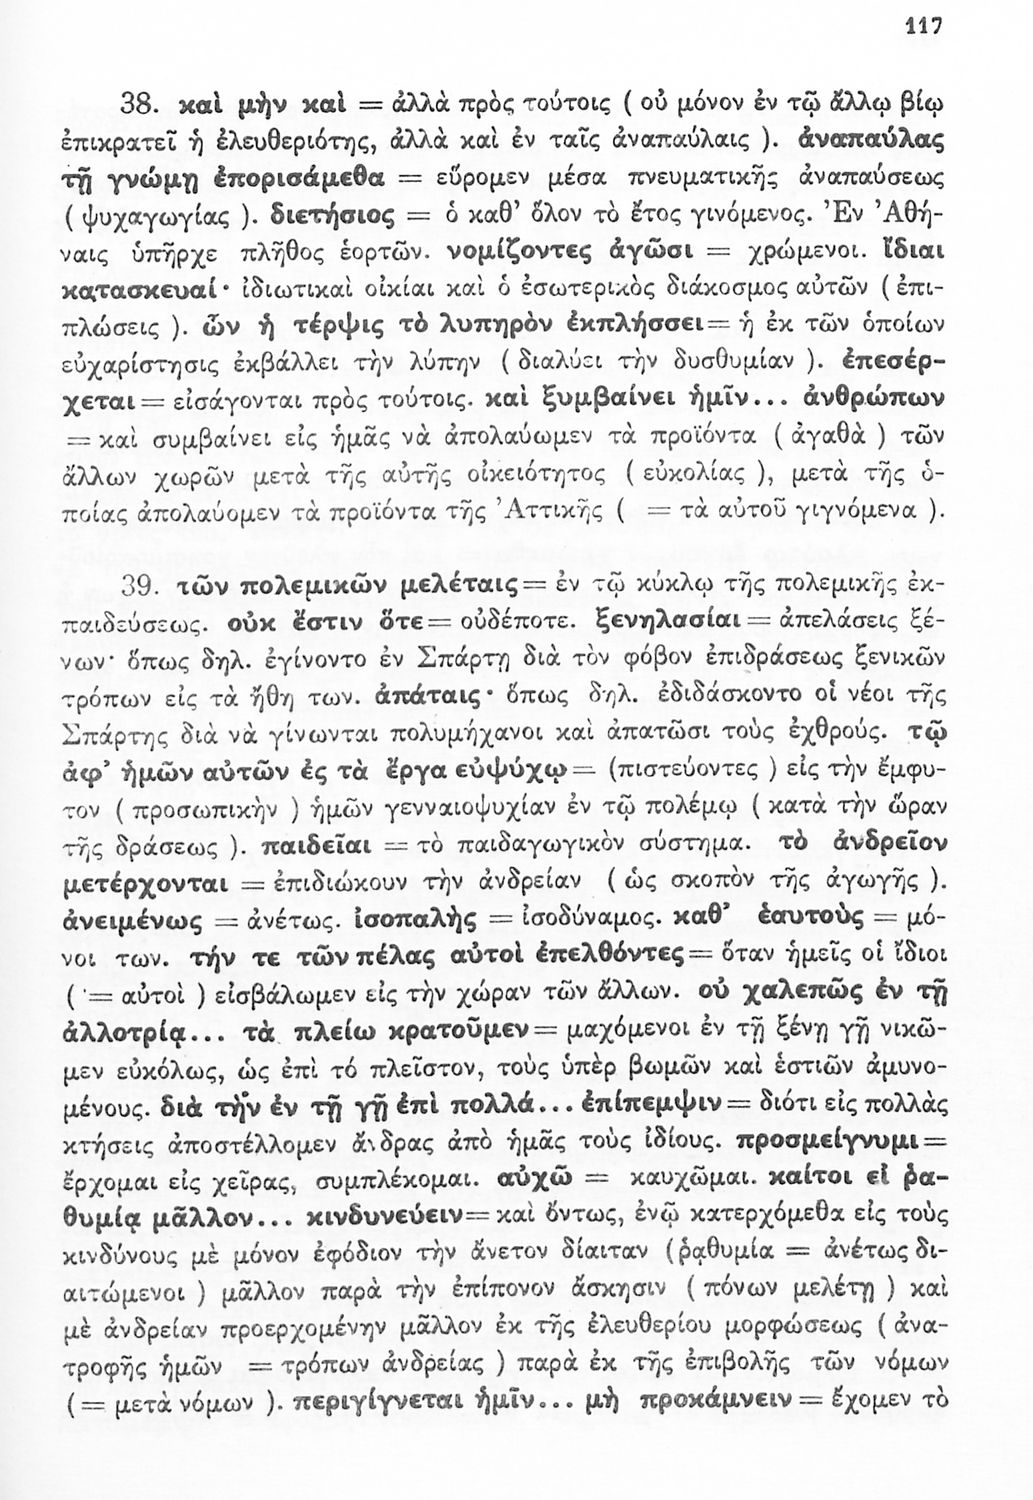 117
38. καὶ μὴν καὶ = ἀλλὰ πρὸς τούτοις ( οὐ μόνον ἐν τῷ ἄλλῳ βίῳ
ἐπικρατεῖ ἡ ἐλευθεριότης, ἀλλὰ καὶ ἐν ταῖς ἀναπαύλαις ). ἀναπαύλας
τῇ γνώμῃ ἐπορισάμεθα = εὕρομεν μέσα πνευματικῆς ἀναπαύσεως
( ψυχαγωγίας ). διετήσιος = ὁ καθ’ ὅλον τὸ ἔτος γινόμενος. Ἐν Ἀθή-
ναις ὑπῆρχε πλῆθος ἑορτῶν. νομίζοντες ἀγῶσι = χρώμενοι. ἴδιαι
κατασκευαί· ἰδιωτικαὶ οἰκίαι καὶ ὁ ἐσωτερικὸς διάκοσμος αὐτῶν ( ἐπι-
πλώσεις ). ὧν ἡ τέρψις τὸ λυπηρὸν ἐκπλήσσει = ἡ ἐκ τῶν ὁποίων
εὐχαρίστησις ἐκβάλλει τὴν λύπην ( διαλύει τὴν δυσθυμίαν ). ἐπεσέρ-
χεται = εἰσάγονται πρὸς τούτοις. καὶ ξυμβαίνει ἡμῖν... ἀνθρώπων
= καὶ συμβαίνει εἰς ἡμᾶς νὰ ἀπολαύωμεν τὰ προϊόντα ( ἀγαθὰ ) τῶν
ἄλλων χωρῶν μετὰ τῆς αὐτῆς οἰκειότητος ( εὐκολίας ), μετὰ τῆς ὁ-
ποίας ἀπολαύομεν τὰ προϊόντα τῆς Ἀττικῆς ( = τὰ αὐτοῦ γιγνόμενα ).
39. τῶν πολεμικῶν μελέταις = ἐν τῷ κύκλῳ τῆς πολεμικῆς ἐκ-
παιδεύσεως. οὐκ ἔστιν ὅτε = οὐδέποτε. ξενηλασίαι = ἀπελάσεις ξέ-
νων· ὅπως δηλ. ἐγίνοντο ἐν Σπάρτῃ διὰ τὸν φόβον ἐπιδράσεως ξενικῶν
τρόπων εἰς τὰ ἤθη των. ἀπάταις· ὅπως δηλ. ἐδιδάσκοντο οἱ νέοι τῆς
Σπάρτης διὰ νὰ γίνωνται πολυμήχανοι καὶ ἀπατῶσι τοὺς ἐχθρούς. τῷ
ἀφ’ ἡμῶν αὐτῶν ἐς τὰ ἔργα εὐψύχῳ = (πιστεύοντες ) εἰς τὴν ἔμφυ-
τον ( προσωπικὴν ) ἡμῶν γενναιοψυχίαν ἐν τῷ πολέμῳ ( κατὰ τὴν ὥραν
τῆς δράσεως ). παιδεῖαι = τὸ παιδαγωγικὸν σύστημα. τὸ ἀνδρεῖον
μετέρχονται = ἐπιδιώκουν τὴν ἀνδρείαν ( ὡς σκοπὸν τῆς ἀγωγῆς ).
ἀνειμένως = ἀνέτως. ἰσοπαλὴς = ἰσοδύναμος. καθ’ ἑαυτοὺς = μό-
νοι των. τήν τε τῶν πέλας αὐτοὶ ἐπελθόντες = ὅταν ἡμεῖς οἱ ἴδιοι
( = αὐτοὶ ) εἰσβάλωμεν εἰς τὴν χώραν τῶν ἄλλων. οὐ χαλεπῶς ἐν τῇ
ἀλλοτρίᾳ... τὰ πλείω κρατοῦμεν = μαχόμενοι ἐν τῇ ξένῃ γῇ νικῶ-
μεν εὐκόλως, ὡς ἐπὶ τό πλεῖστον, τοὺς ὑπὲρ βωμῶν καὶ ἑστιῶν ἀμυνο-
μένους. διὰ τὴν ἐν τῇ γῇ ἐπὶ πολλά... ἐπίπεμψιν = διότι εἰς πολλὰς
κτήσεις ἀποστέλλομεν ἄνδρας ἀπὸ ἡμᾶς τοὺς ἰδίους. προσμείγνυμι =
ἔρχομαι εἰς χεῖρας, συμπλέκομαι. αὐχῶ = καυχῶμαι. καίτοι εἰ ῥα-
θυμίᾳ μᾶλλον... κινδυνεύειν = καὶ ὄντως, ἐνῷ κατερχόμεθα εἰς τοὺς
κινδύνους μὲ μόνον ἐφόδιον τὴν ἄνετον δίαιταν (ῥᾳθυμία = ἀνέτως δι-
αιτώμενοι ) μᾶλλον παρὰ τὴν ἐπίπονον ἄσκησιν ( πόνων μελέτῃ ) καὶ
μὲ ἀνδρείαν προερχομένην μᾶλλον ἐκ τῆς ἐλευθερίου μορφώσεως ( ἀνα-
τροφῆς ἡμῶν = τρόπων ἀνδρείας ) παρὰ ἐκ τῆς ἐπιβολῆς τῶν νόμων
( = μετὰ νόμων ). περιγίγνεται ἡμῖν... μὴ προκάμνειν = ἔχομεν τὸ